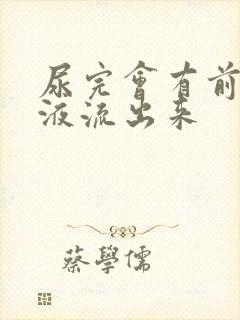 尿完會有前
液流出来
蔡學儒